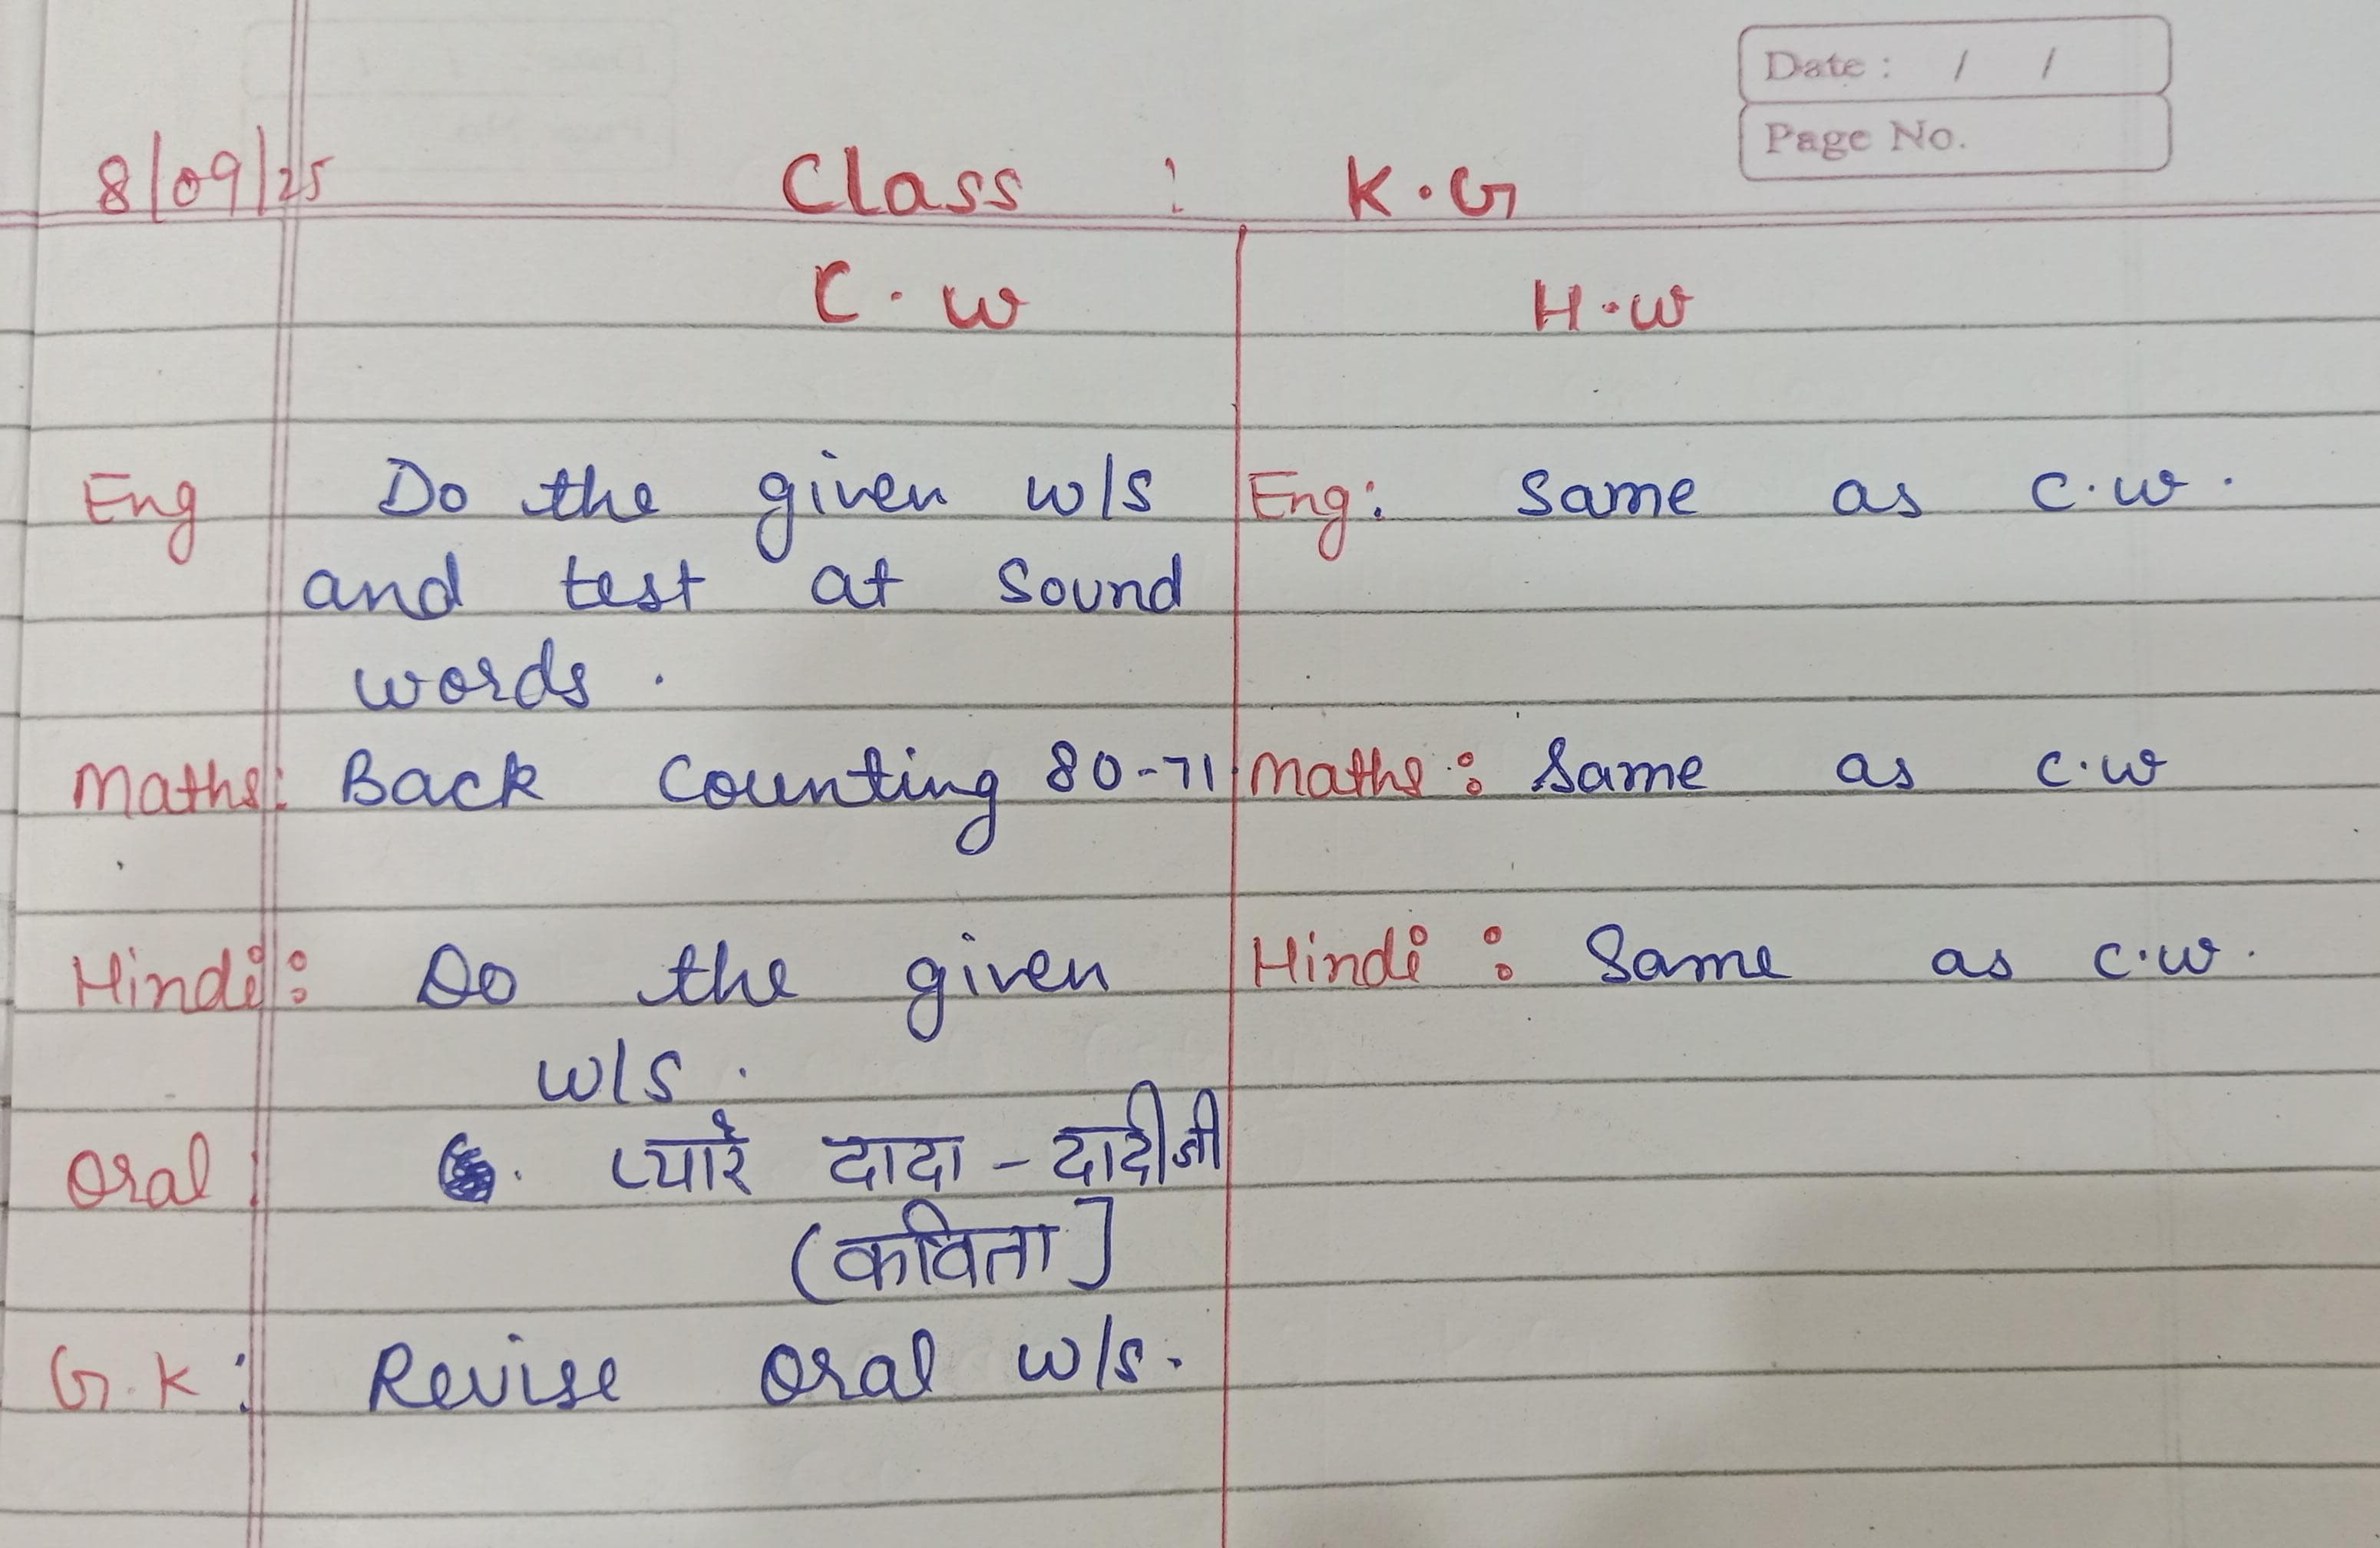 Date : / /
Page No.
8/09/25 Class : K.G
C.w H.w
Eng Do the given w/s Eng: Same as c.w.
and test at Sound
words.
Maths: Back Counting 80-71 Maths: Same as c.w
Hindi: Do the given Hindi: Same as c.w.
w/s.
Oral: प्यारे दादा - दादीजी
(कविता]
G.K: Revise Oral w/s.